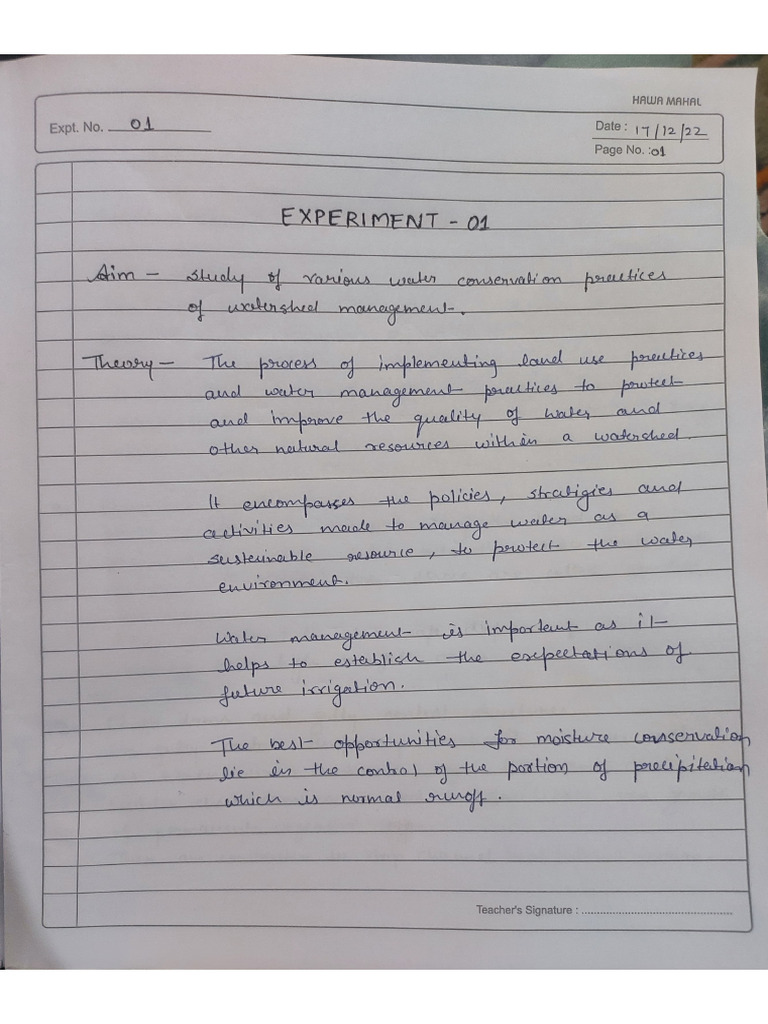 HAWA MAHAL
Expt. No. 01
Date : 17/12/22
Page No. : 01
EXPERIMENT - 01
Aim - study of various water conservation practices
of watershed management.
Theory - The process of implementing land use practices
and water management practices to protect
and improve the quality of water and
other natural resources within a watershed.
It encompasses the policies, stratigies and
activities made to manage water as a
sustainable resource, to protect the water
environment.
Water management is important as it
helps to establish the expectations of
future irrigation.
The best opportunities for moisture conservation
lie in the control of the portion of precipitation
which is normal runoff.
Teacher's Signature : ................................................